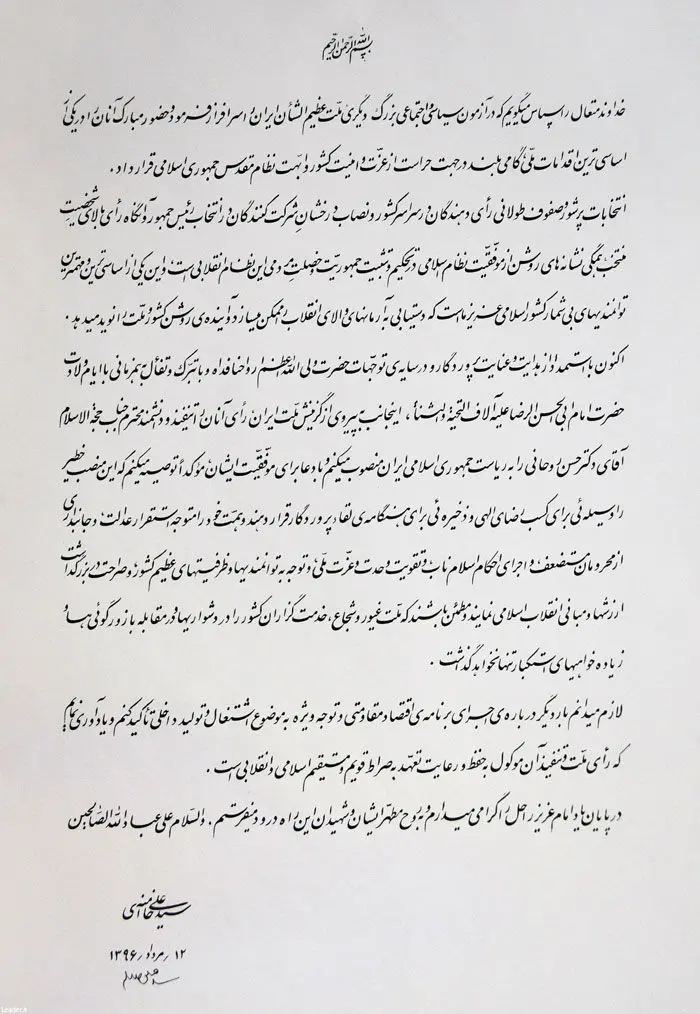 بسم الله الرحمن الرحیم
خداوند متعال را سپاس میگویم که در آزمون سیاسی و اجتماعی بزرگ دیگری ملت عظیم الشأن ایران را سرافراز فرمود و حضور مبارک آنان را در یکی از
اساسی ترین اقدامات ملّی گامی بلند در جهت حراست از عزّت و امنیت کشور و ابهت نظام مقدس جمهوری اسلامی قرار داد .
انتخابات پرشور و صفوف طولانی رأی دهندگان در سراسر کشور و نصاب درخشان شرکت کنندگان در انتخاب رئیس جمهور و آنگاه رأی بالای شخصیت
منتخب همگی نشانه های روشن از موفقیّت نظام اسلامی در تحکیم و تثبیت جمهوریت و خصلت مردمی این نظام انقلابی است و این یکی از اساسی ترین و مهمترین
توانمندیهای بی شمار کشور اسلامی عزیز ما است که دستیابی به آرمانهای والای انقلاب را ممکن میسازد و آینده ی روشن کشور و ملت را نوید میدهد .
اکنون با استمداد از هدایت و عنایت پروردگار و در سایه ی توجهات حضرت ولی الله الاعظم ارواحنا فداه و با تبرّک و تفأّل به همزمانی با ایام ولادت
حضرت امام ابی الحسن الرضا علیه آلاف التحیة و الثناء ، اینجانب به پیروی از گزینش ملت ایران رأی آنان را تنفیذ و دانشمند محترم جناب حجة الاسلام
آقای دکتر حسن روحانی را به ریاست جمهوری اسلامی ایران منصوب میکنم و با دعا برای موفقیّت ایشان مؤکداً توصیه میکنم که این منصب خطیر
را وسیله ئی برای کسب رضای الهی و ذخیره ئی برای هنگامه ی لقاء پروردگار قرار دهند و همّت خود را متوجه استقرار عدالت و جانبداری
از محرومان و مستضعف و اجرای احکام اسلام ناب و تقویت وحدت و عزّت ملّی و توجه به توانمندیها و ظرفیتهای عظیم کشور و صراحت در بزرگداشت
ارزشها و مبانی انقلاب اسلامی نمایند و مطمئن باشند که ملت غیور و شجاع ، خدمتگزاران کشور را در دشواریها و در مقابله با زورگوئی ها و
زیاده خواهیهای استکبار تنها نخواهد گذاشت .
لازم میدانم بار دیگر درباره ی اجرای برنامه ی اقتصاد مقاومتی و توجه ویژه به موضوع اشتغال و تولید داخلی تأکید کنم و یادآوری نمایم
که رأی ملت و تنفیذ آن موکول به حفظ و رعایت تعهد به صراط قویم و مستقیم اسلامی و انقلابی است .
در پایان یاد امام عزیز راحل را گرامی میدارم و به روح مطهر ایشان و شهیدان این راه درود میفرستم . والسّلام علی عباد الله الصالحین
سید علی خامنه ای
۱۲ / مرداد / ۱۳۹۶